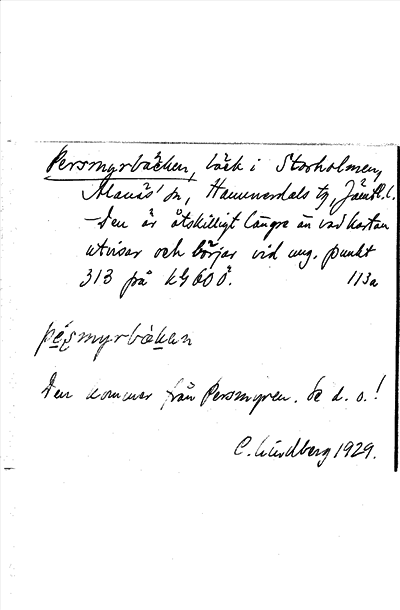 Persmyrbäcken, bäck i Storholmen,
Alanäs' sn, Hammerdals tg, Jämtl. l.
– Den är åtskilligt längre än vad kartan
utvisar och börjar vid ung. punkt
313 på kG 60 Ö. 113a
pe̱s̱myrbäkan
Den kommer från Persmyren. Se d. o.!
C. Lindberg 1929.